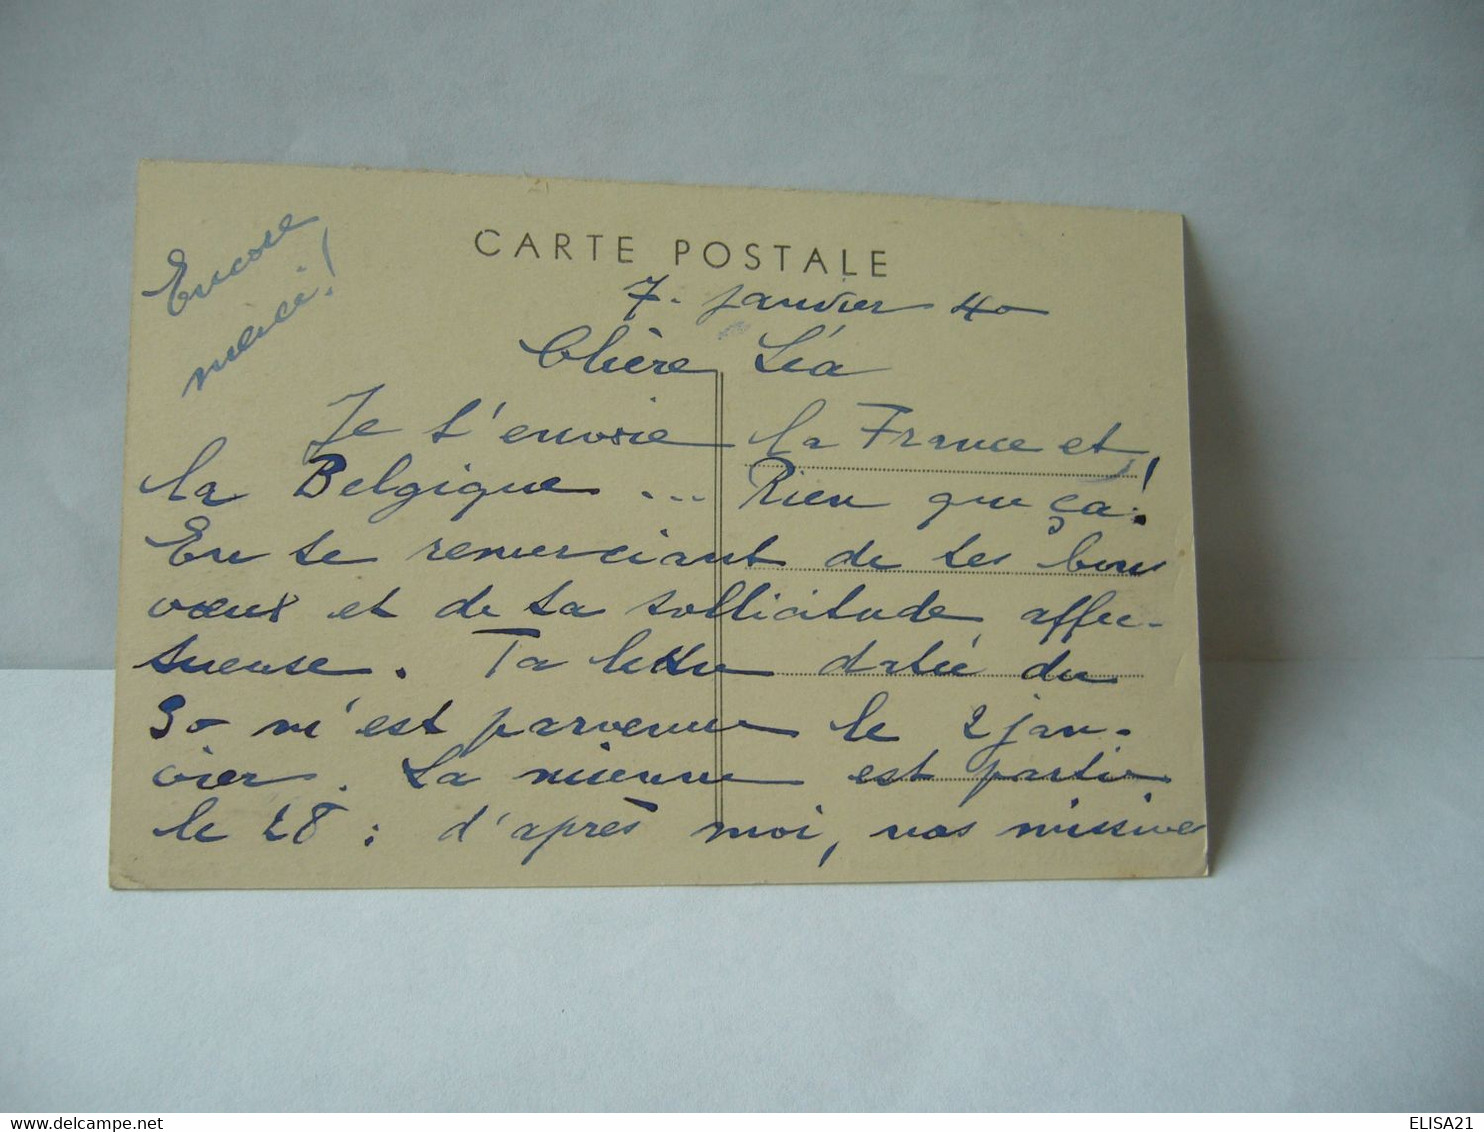 Encore
merci !
CARTE POSTALE
7. Janvier 40
Chère Léa
Je t'envoie la France et
la Belgique ... Rien que ça !
En te remerciant de tes bons
vœux et de ta sollicitude affec-
tueuse. Ta lettre datée du
30 m'est parvenue le 2 jan-
vier. La mienne est partie
le 28 : d'après moi, nos missives
ELISA21